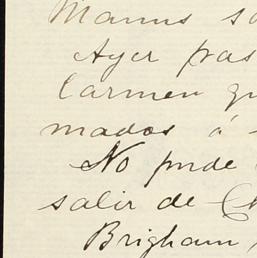 Manns
Ayer pas
Carmen qu
mados á
No pude
salir de Ch
Brigham,